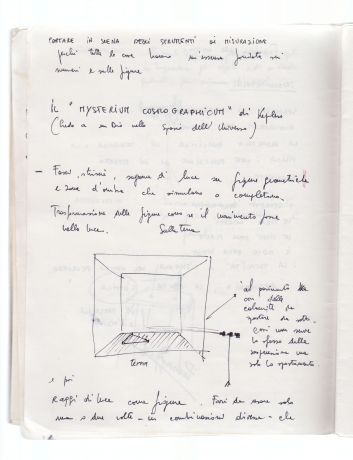 PORTARE IN SCENA DEGLI STRUMENTI DI MISURAZIONE
perché tutte le cose hanno un'essenza fondata sui
numeri e sulle figure
IL "MYSTERIUM COSMOGRAPHICUM" di Keplero
(Credo a un Dio nello Spazio dell'Universo)
- Fasci, strisce, sagome di luce su figure geometriche
e zone d'ombra che simulano o completano.
Trasformazione delle figure come se il movimento fosse
nella luce. Sulla terra
al pavimento
con delle
calamite da
spostare da sotto.
così non serve
lo sfasso della
sospensione ma
solo lo spostamento.
terra
e poi
Raggi di luce come figure. Farli da zone solo
una o due volte - in combinazioni diverse - che